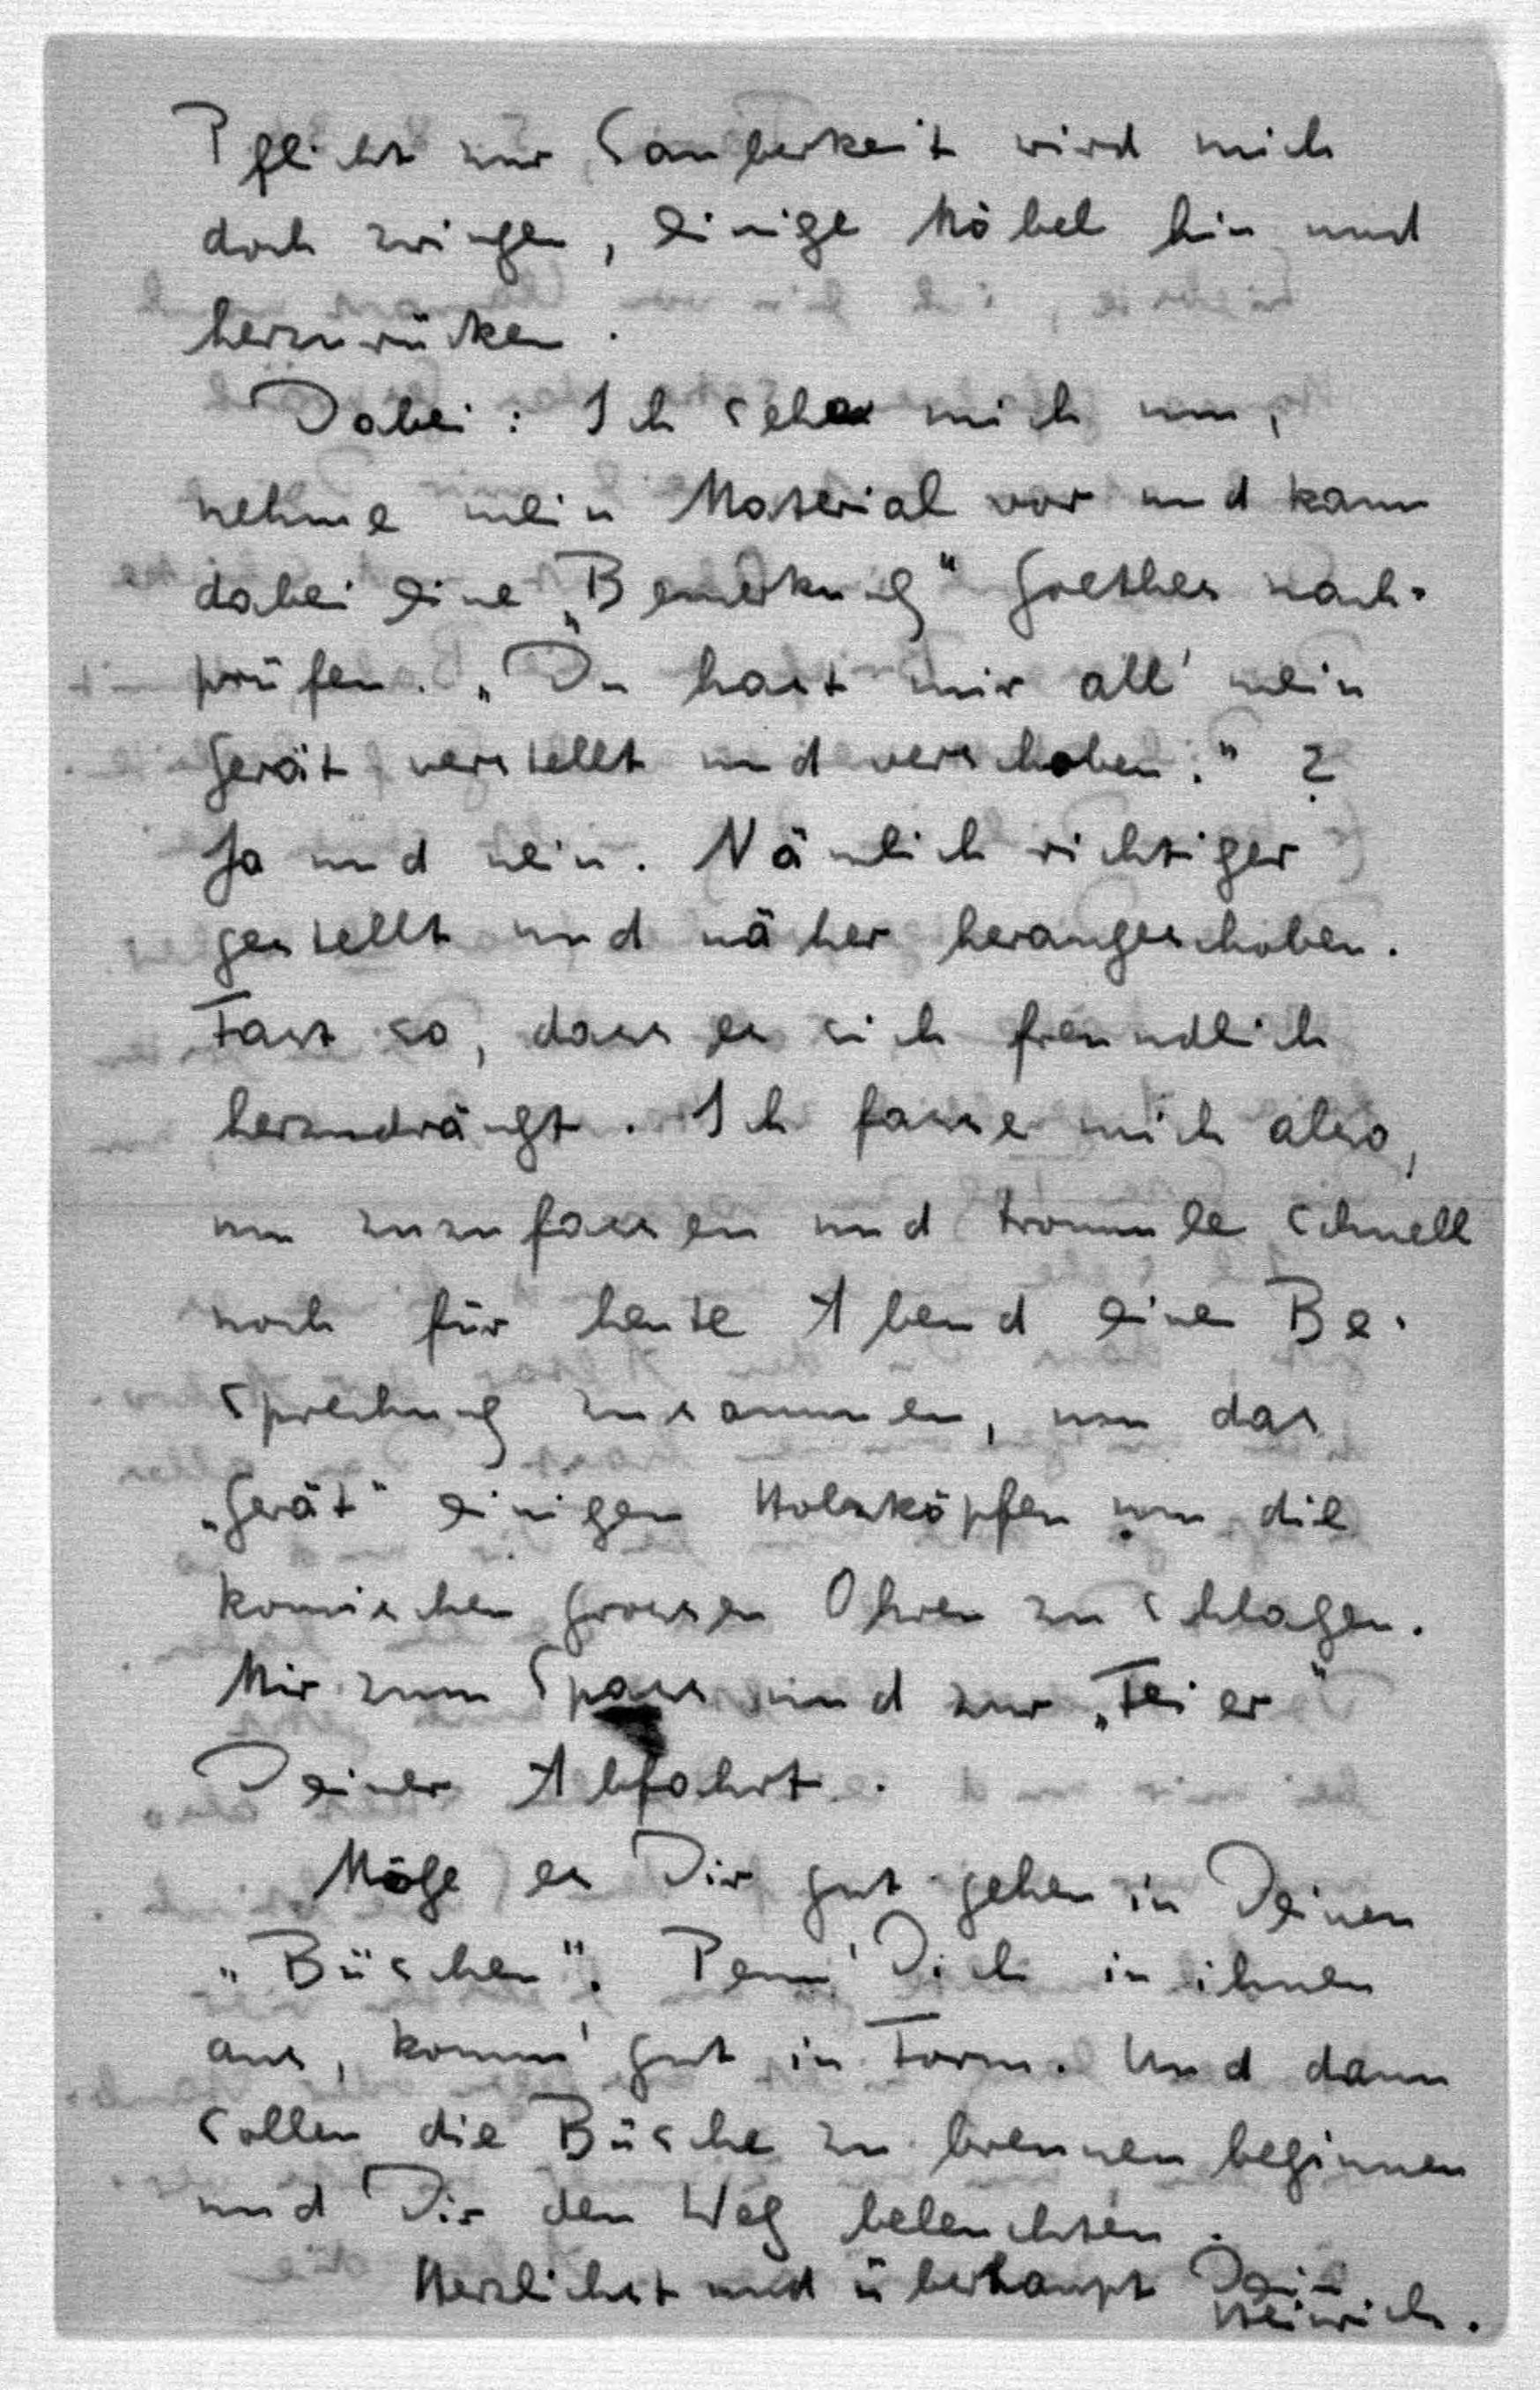 Pflicht zur Sauberkeit wird mich
doch zwingen, einige Möbel hin und
herzurücken.
Dabei: Ich sehe mich um,
nehme mein Material vor und kann
dabei eine „Bemerkung" Goethes nach-
prüfen. „Du hast mir all' mein
Gerät verstellt und verschoben." ?
Ja und nein. Nämlich richtiger
gestellt und näher herangeschoben.
Fast so, dass es sich freundlich
herzudrängt. Ich fasse mich also,
um zuzufassen und trommle schnell
noch für heute Abend eine Be-
sprechung zusammen, um das
„Gerät" einigen Holzköpfen um die
komischen grossen Ohren zu schlagen.
Mir zum Spass und zur „Feier"
Deiner Abfahrt.
Möge es Dir gut gehen in Deinen
„Büschen". Penn' Dich in ihnen
aus, komm' gut in Form. Und dann
sollen die Büsche zu brennen beginnen
und Dir den Weg beleuchten.
Herzlichst und überhaupt Dein
Heinrich.